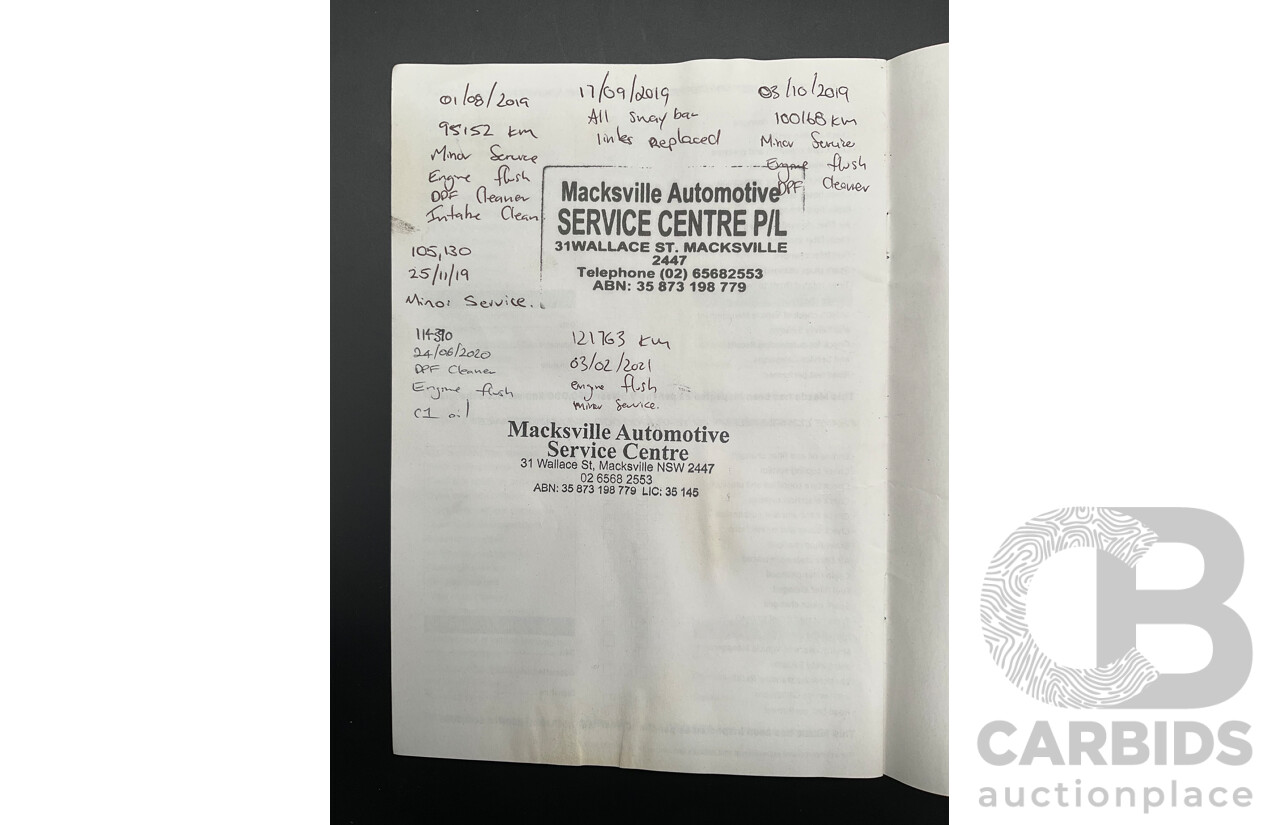 01/08/2019
95152 km
Minor Service
Engine flush
DPF Cleaner
Intake Clean
17/09/2019
All sway bar
links Replaced
03/10/2019
100168 km
Minor Service
Engine flush
DPF Cleaner
Macksville Automotive
SERVICE CENTRE P/L
31WALLACE ST. MACKSVILLE
2447
Telephone (02) 65682553
ABN: 35 873 198 779
105,130
25/11/19
Minor Service.
24/06/2020
DPF Cleaner
Engine flush
C1 oil
121763 km
03/02/2021
engine flush
minor service.
Macksville Automotive
Service Centre
31 Wallace St, Macksville NSW 2447
02 6568 2553
ABN: 35 873 198 779 LIC: 35 145
CB
CARBIDS
auctionplace